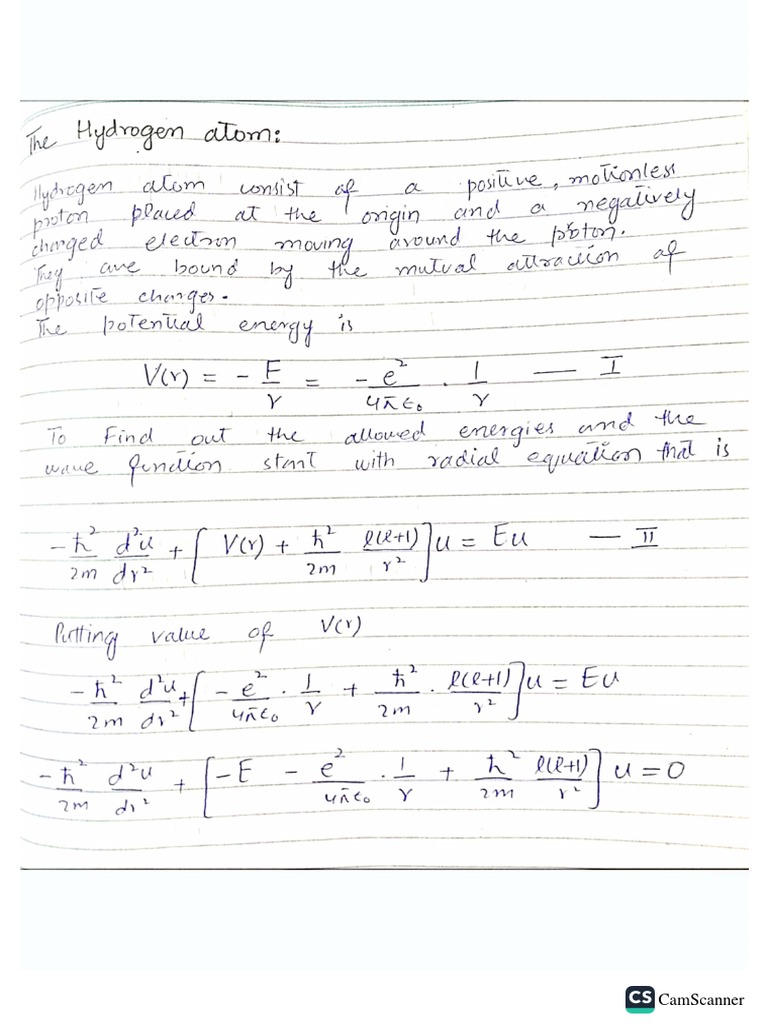 The Hydrogen atom:
Hydrogen atom consist of a positive, motionless
proton placed at the origin and a negatively
charged electron moving around the proton.
They are bound by the mutual attraction of
opposite charges.
The potential energy is
V(r) = - E/r = -e²/4πε₀ · 1/r — I
To Find out the allowed energies and the
wave function start with radial equation that is
-ħ²/2m d²u/dr² + [V(r) + ħ²/2m l(l+1)/r²]u = Eu — II
Putting value of V(r)
-ħ²/2m d²u/dr² + [-e²/4πε₀ · 1/r + ħ²/2m · l(l+1)/r²]u = Eu
-ħ²/2m d²u/dr² + [-E - e²/4πε₀ · 1/r + ħ²/2m l(l+1)/r²] u = 0
CS CamScanner